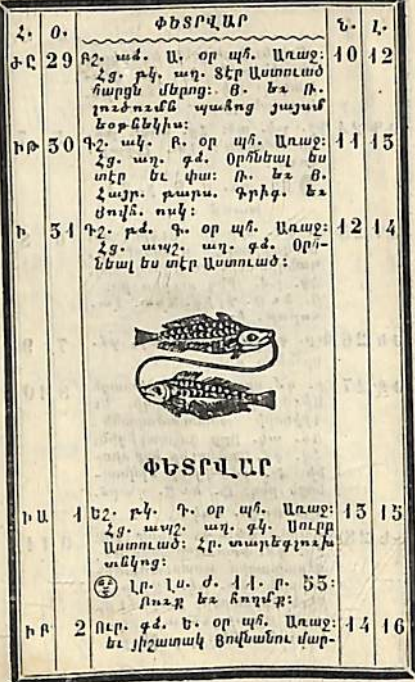 Հ. Օ. ՓԵՏՐՎԱՐ Ն. Լ.
ԺԸ 29 Բշ. ած. Ա. օր պհ. Առաջ: 10 12
Հց. բկ. աղ. Տէր Աստուած
հարցն մերոց: Յ. եւ Ռ.
լուծումն պահոց յայսմ
եօթնեկիս:
ԻԹ 30 Գշ. ակ. Բ. օր պհ. Առաջ: 11 13
Հց. աղ. գձ. Օրհնեալ ես
տէր եւ փա: Ռ. եւ Յ.
Հայր. բարս. Գրիգ. եւ
Յովհ. ոսկ:
Ի 31 Դշ. բձ. Գ. օր պհ. Առաջ: 12 14
Հց. ապշ. աղ. գձ. Օրհ-
նեալ ես տէր Աստուած:
ՓԵՏՐՎԱՐ
ԻԱ 1 Եշ. բկ. Դ. օր պհ. Առաջ: 13 15
Հց. ապշ. աղ. գկ. Սուրբ
Աստուած: Հր. տարեգլուխ
տնկոց:
Լր. Լս. Ժ. 11. ր. 55:
Բուք եւ հողմք:
ԻԲ 2 Ուր. գձ. Ե. օր պհ. Առաջ: 14 16
եւ յիշատակ Յովնանու մար-